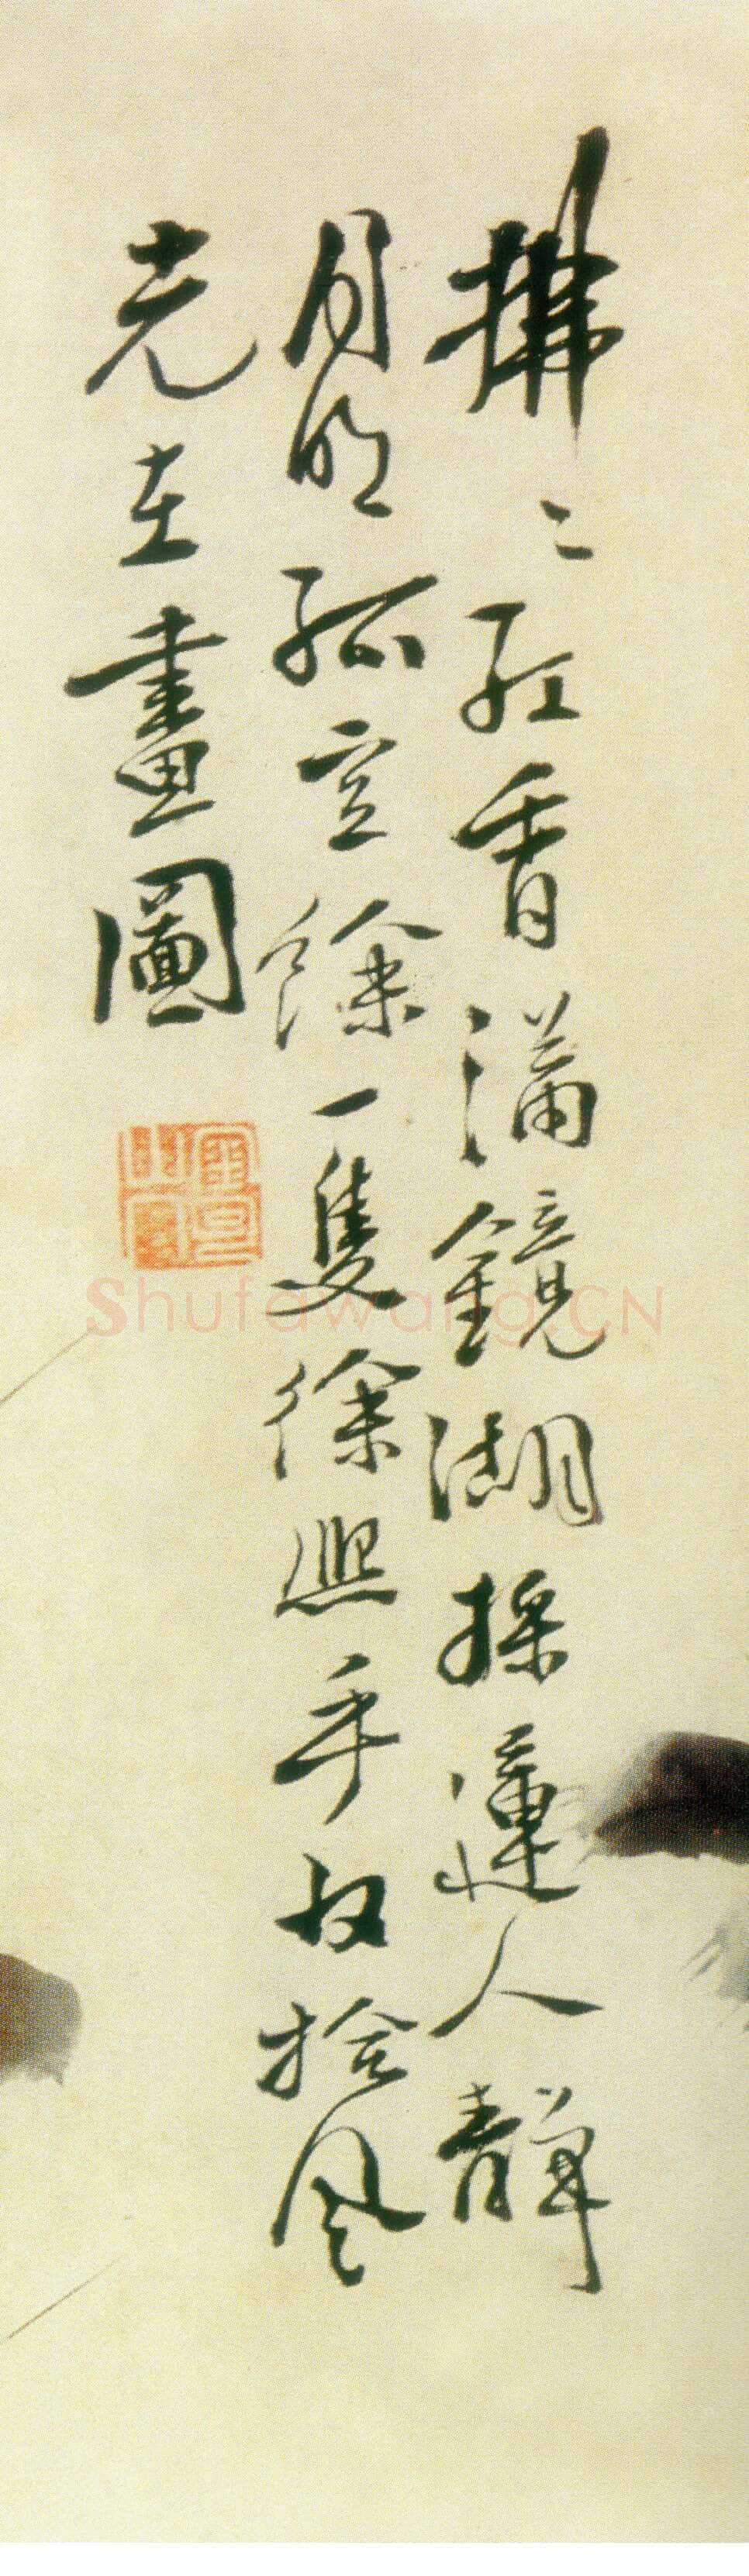 拂々紅香滿鏡湖採蓮人靜
月明孤空餘一隻徐熙手收拾風
光在畫圖
Shufawang.CN